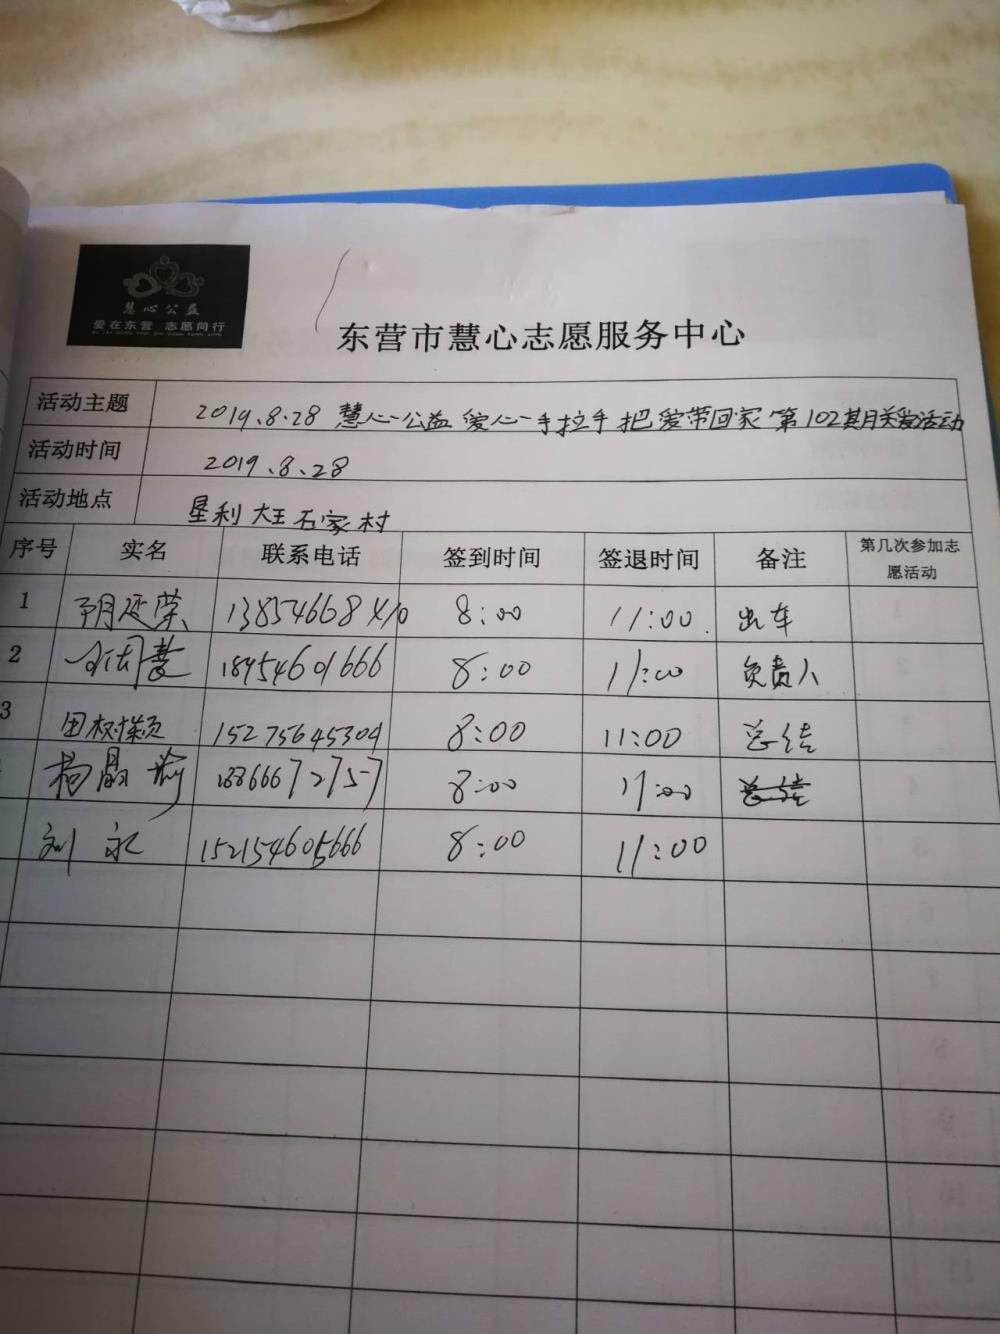 慧心公益
爱在东营 志愿同行
东营市慧心志愿服务中心
活动主题 2019.8.28 慧心公益 爱心手拉手 把爱带回家 第102期月关爱活动
活动时间 2019.8.28
活动地点 垦利大王石家村
序号 实名 联系电话 签到时间 签退时间 备注 第几次参加志愿活动
1 延荣 8:00 11:00 出车
2 18954601666 8:00 11:00 负责人
3 田树颖 15275645304 8:00 11:00 总结
杨晶 8:00 11:00 总结
刘永 152154605666 8:00 11:00